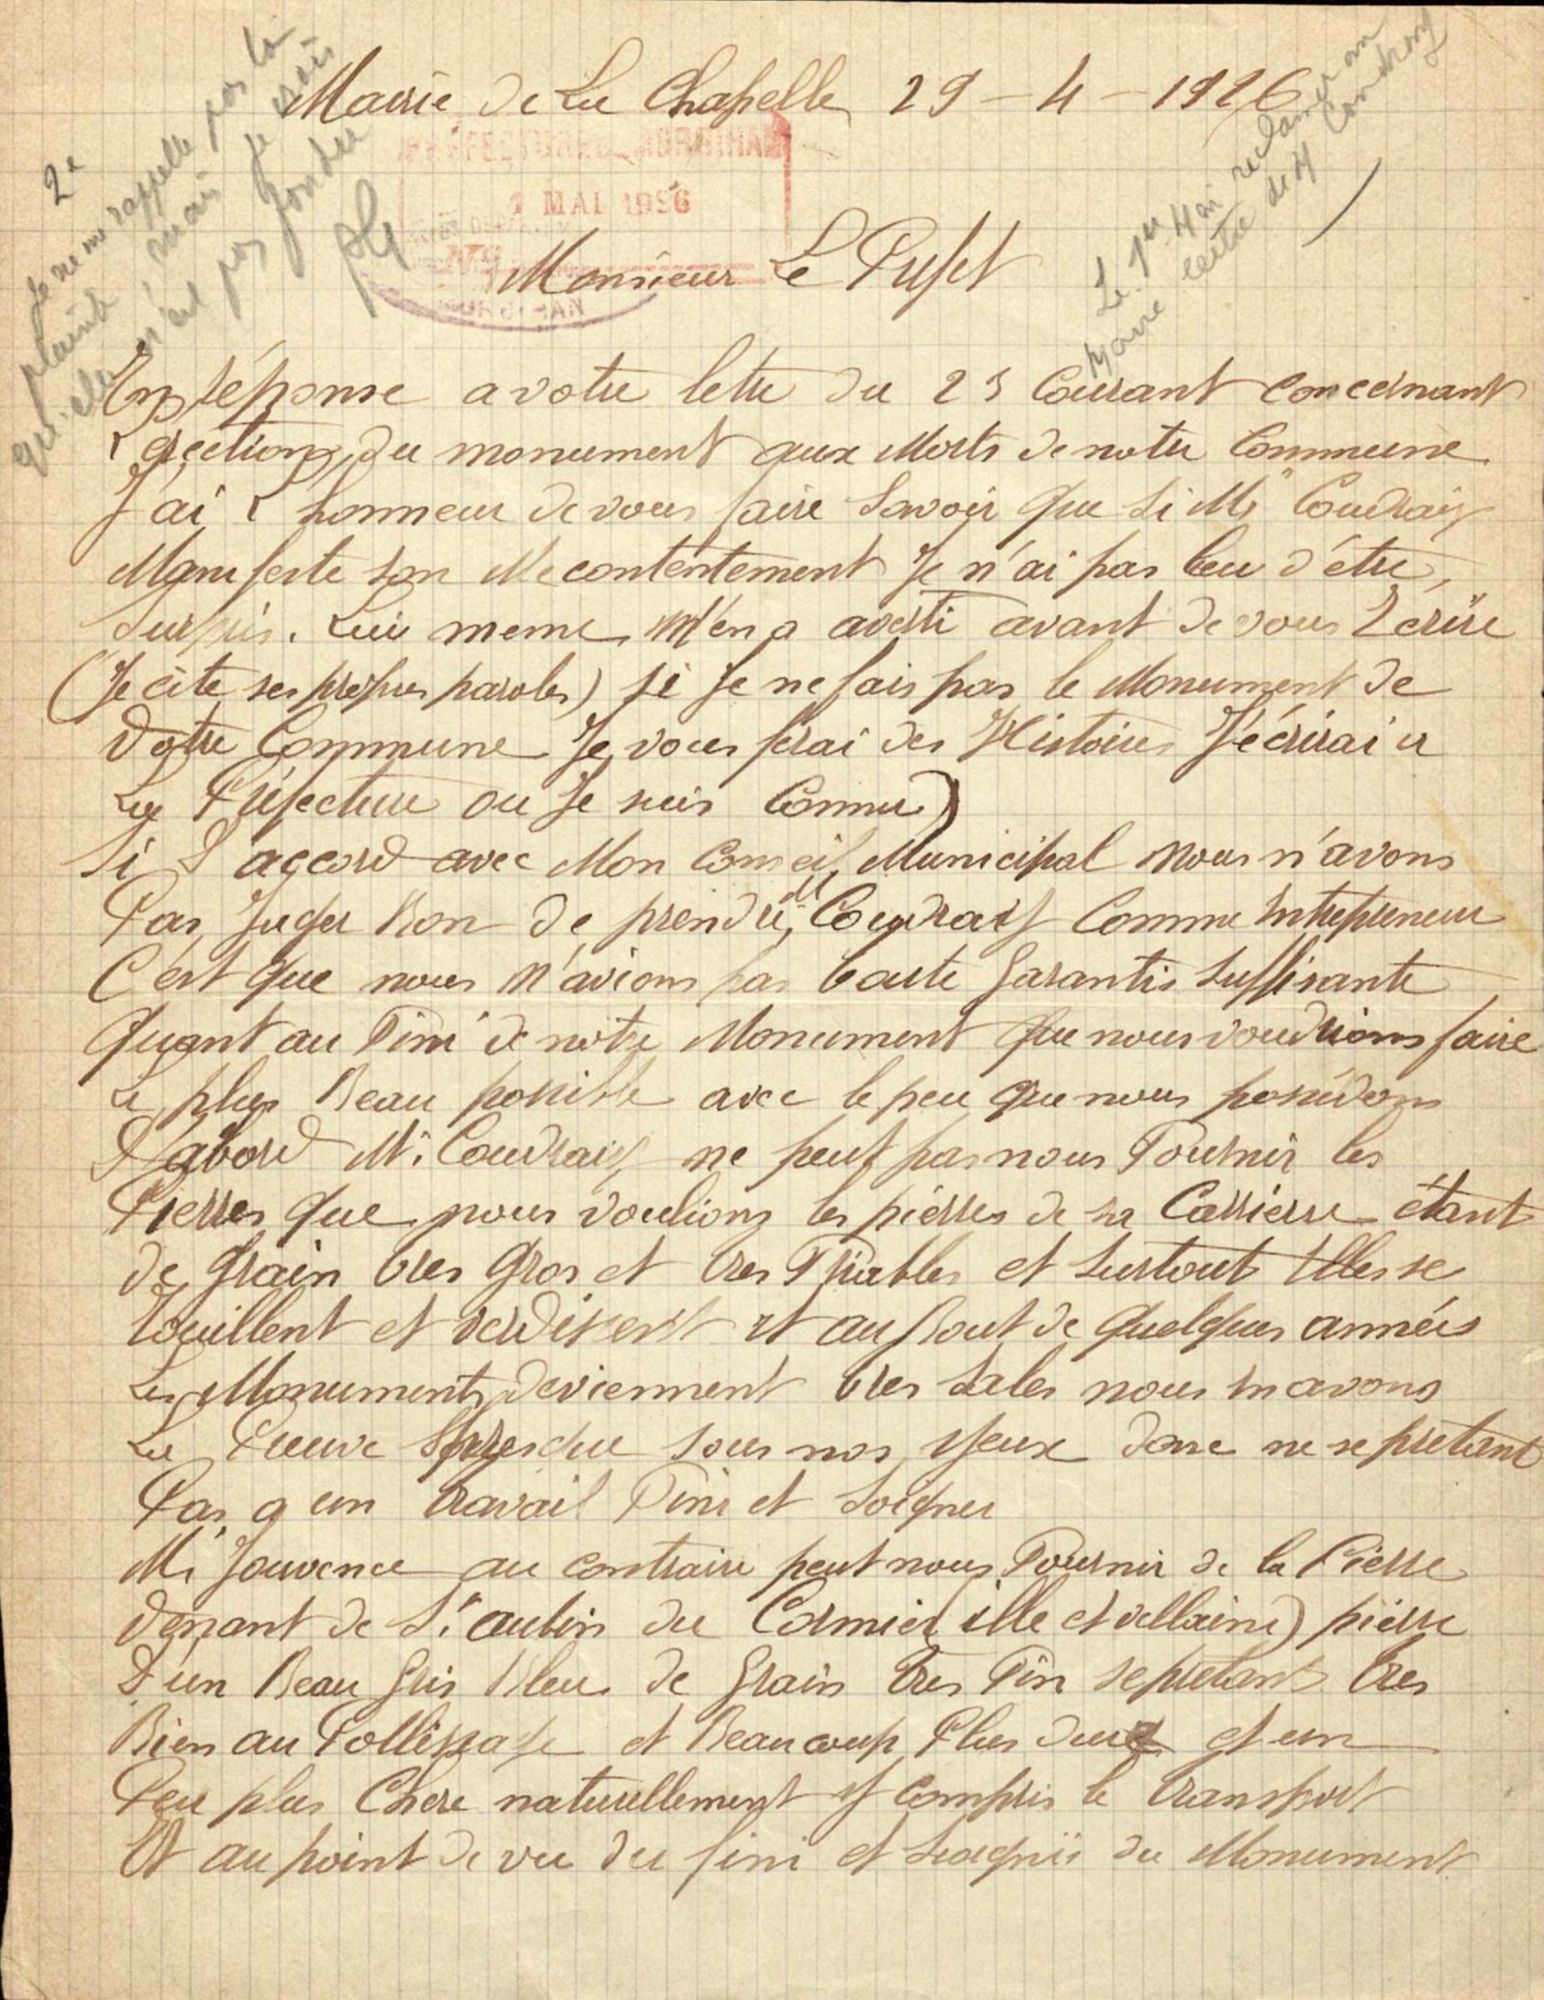 Mairie de La Chapelle 29 - 4 - 1926
2e
Je ne me rappelle pas la
plainte mais je crois
qu'elle n'est pas fondée
Le 1er Mai réclamer au
Maire lettre de M Coudray
PREFECTURE DU MORBIHAN
1 MAI 1926
MORBIHAN
Monsieur Le Préfet
En réponse a votre letre du 23 Courant concernant
L'erection du monument aux Morts de notre Commune
J'ai L'honneur de vous faire Savoir que si Mr Coudray
Manifeste son Mecontentement Je n'ai pas lieu d'être
Surpris. Lui meme M'en a averti avant de vous Ecrire
(Je cite ses propres paroles) si Je ne fais pas le Monument de
Votre Commune Je vous ferai des Histoires J'écrirai a
La Préfecture ou Je suis Connu)
Si D'accord avec Mon Conseil Municipal Nous n'avons
Pas Juger Bon de prendre Mr Coudray Comme Entrepreneur
C'est que nous N'avions pas toute Garantis Suffisante
Quant au Fini de notre Monument que nous voudrions faire
Le plus Beau possible avec le peu que nous possédons
D'abord Mr Coudray ne peut pas nous Fournir les
Pierres que nous voulions les pierres de sa Carrierre étant
de Grain tres Gros et tres Friables et surtout Elles se
Rouillent et verdissent et au Bout de quelques années
Les Monuments deviennent tres Sales nous en avons
La Preuve presque sous nos yeux donc ne se pretant
Pas a un travail Fini et Soigner
Mr Jouvence au contraire peut nous Fournir de la Pierre
Venant de St aubin du Cormier (ille et villaine) pierre
D'un Beau Gris Bleu de Grain tres Fin se pretant tres
Bien au Pollissage et Beaucoup Plus dure et un
Peu plus Chere naturellement y compris le transport
Et au point de vue du fini et Soignii du Monument